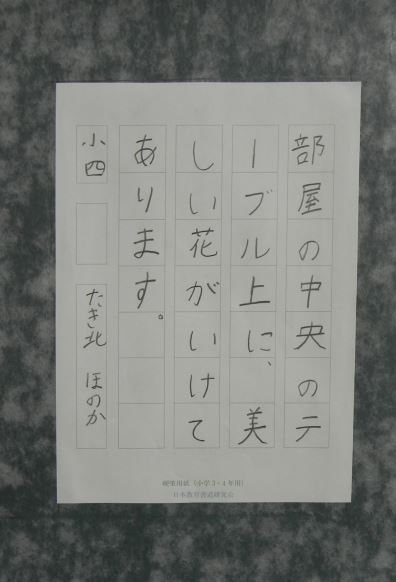 部屋の中央のテ
ーブル上に、美
しい花がいけて
あります。
小四
たき北 ほのか
硬筆用紙（小学3・4年用）
日本教育書道研究会